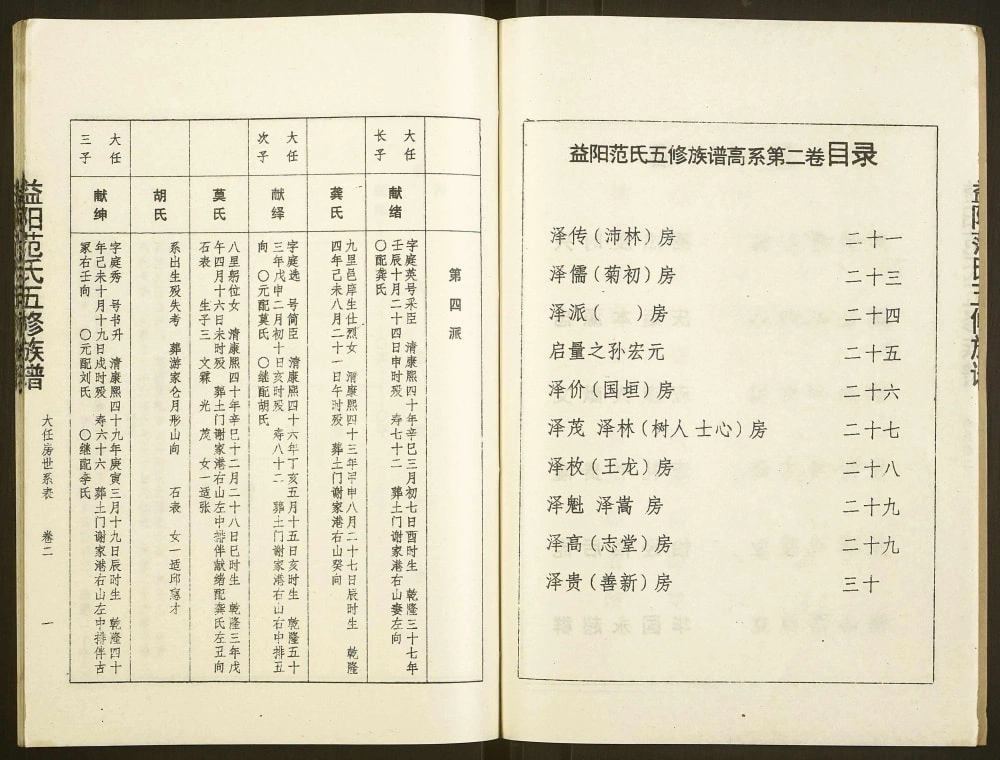 益阳范氏五修族谱高系第二卷目录
泽传(沛林)房 二十一
泽儒(菊初)房 二十三
泽派( )房 二十四
启量之孙宏元 二十五
泽价(国垣)房 二十六
泽茂 泽林(树人 士心)房 二十七
泽枚(王龙)房 二十八
泽魁 泽嵩 房 二十九
泽高(志堂)房 二十九
泽贵(善新)房 三十
第四派
大任
长子
献绪
字庭英号采臣 清康熙四十年辛巳三月初七日酉时生 乾隆三十七年
壬辰十月二十四日申时殁 寿七十二 葬土门谢家港右山妻左向
〇配龚氏
龚氏
九里邑庠生仕烈女 清康熙四十三年甲申八月二十七日辰时生 乾隆
四年己未八月二十一日午时殁 葬土门谢家港右山癸向
大任
次子
献绎
字庭选 号简臣 清康熙四十六年丁亥五月十五日亥时生 乾隆五十
三年戊申二月初十日亥时殁 寿八十二 葬土门谢家港右山右中排五
向 〇元配莫氏 〇继配胡氏
莫氏
八里躬位女 清康熙四十年辛巳十二月二十八日巳时生 乾隆三年戊
午四月十六日未时殁 葬土门谢家港右山左中排伴献绪配龚氏左丑向
石表 生子三 文霖 光 茂 女一适张
胡氏
系出生殁失考 葬游家仑月形山向 石表 女一适邱 才
大任
三子
献绅
字庭秀 号书升 清康熙四十九年庚寅三月十九日辰时生 乾隆四十
年己未十月十九日戌时殁 寿六十六 葬土门谢家港右山左中排伴吉
冢右壬向 〇元配刘氏 〇继配李氏
益阳范氏五修族谱
大任房世系表 卷二 一
益阳范氏五修族谱